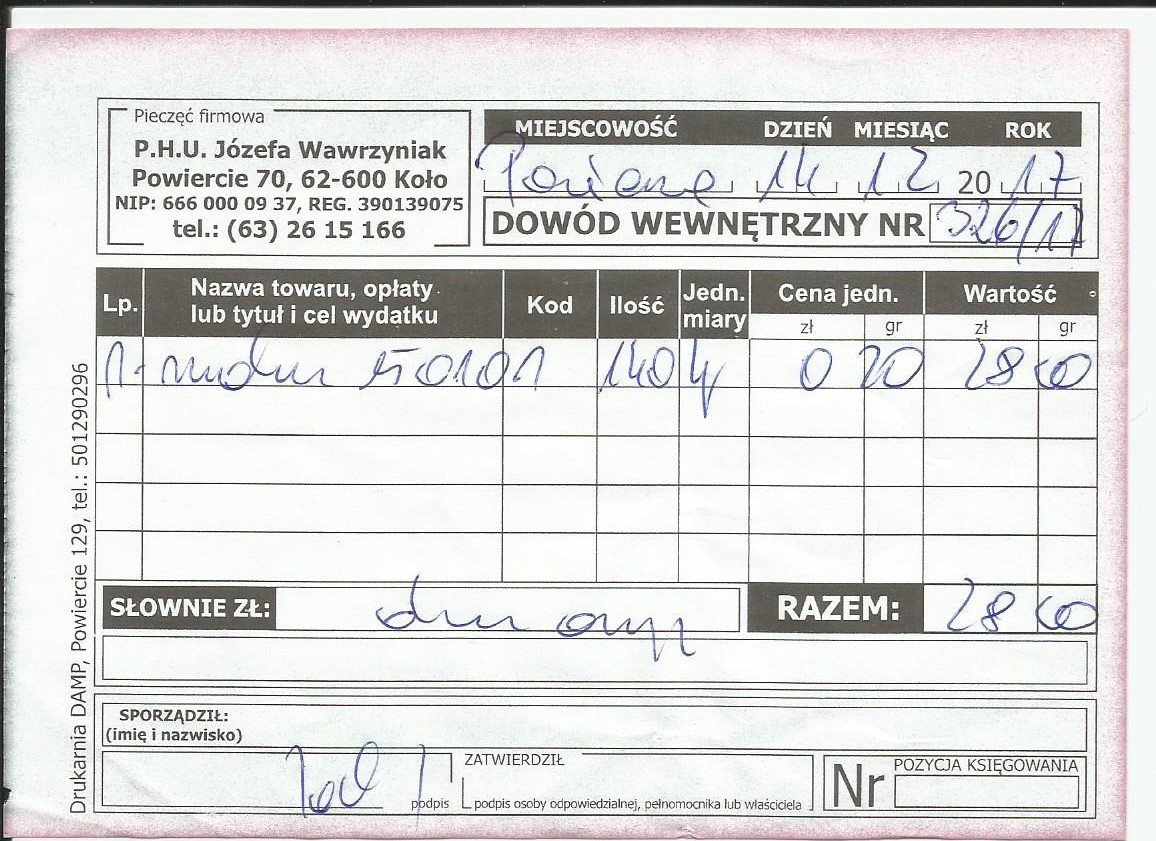 Pieczęć firmowa
P.H.U. Józefa Wawrzyniak
Powiercie 70, 62-600 Koło
NIP: 666 000 09 37, REG. 390139075
tel.: (63) 26 15 166
MIEJSCOWOŚĆ DZIEŃ MIESIĄC ROK
14 12 2017
DOWÓD WEWNĘTRZNY NR 326/17
Lp. Nazwa towaru, opłaty lub tytuł i cel wydatku Kod Ilość Jedn. miary Cena jedn. zł gr Wartość zł gr
1. 150101 140 0 20 28 00
SŁOWNIE ZŁ: RAZEM: 28 00
SPORZĄDZIŁ:
(imię i nazwisko)
podpis
ZATWIERDZIŁ
podpis osoby odpowiedzialnej, pełnomocnika lub właściciela
Nr POZYCJA KSIĘGOWANIA
Drukarnia DAMP, Powiercie 129, tel.: 501290296